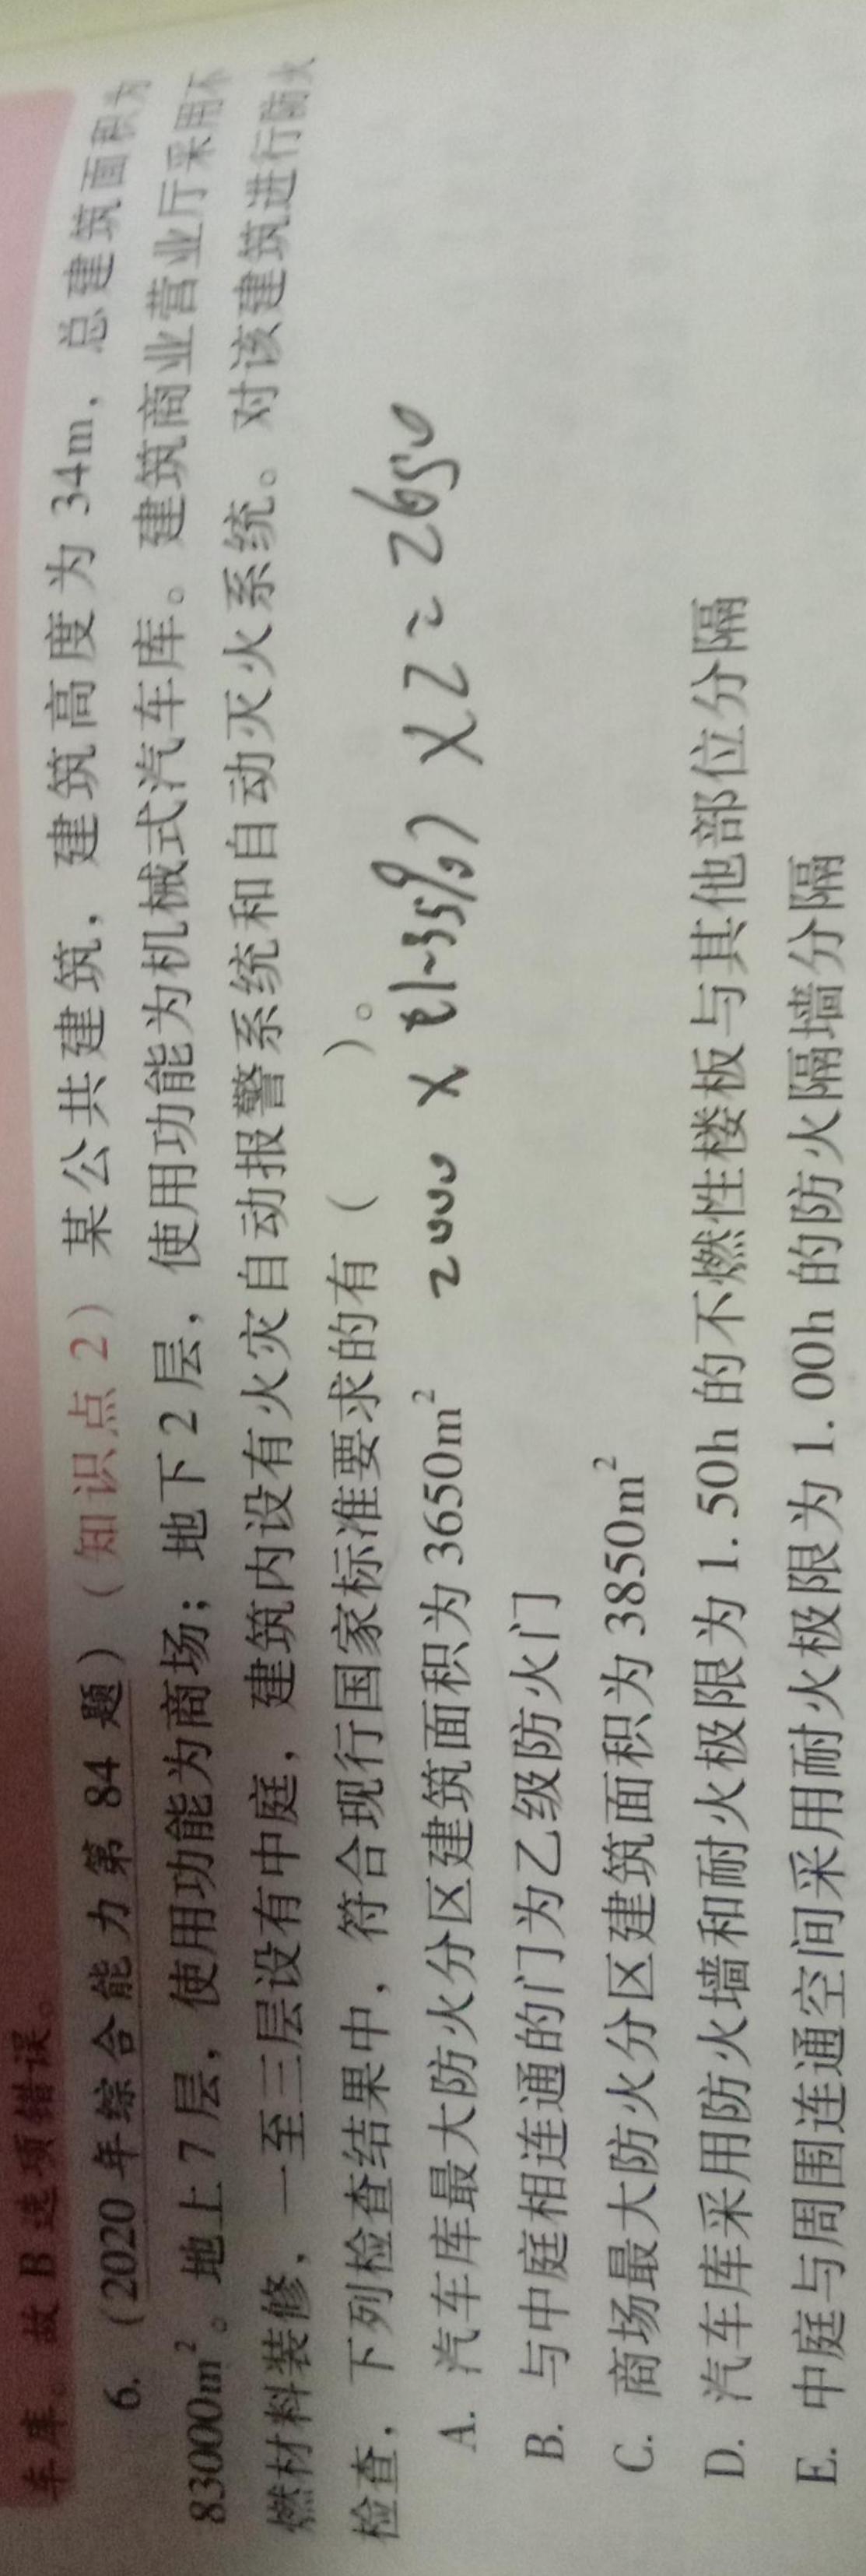 车库。故 B 选项错误。
6.（2020 年综合能力第 84 题）（知识点 2）某公共建筑，建筑高度为 34m，总建筑面积为
83000m²。地上 7 层，使用功能为商场；地下 2 层，使用功能为机械式汽车库。建筑商业营业厅采用不
燃材料装修，一至三层设有中庭，建筑内设有火灾自动报警系统和自动灭火系统。对该建筑进行防火
检查，下列检查结果中，符合现行国家标准要求的有（ ）。
A. 汽车库最大防火分区建筑面积为 3650m²
2000 × (1-35%) × 2 = 2650
B. 与中庭相连通的门为乙级防火门
C. 商场最大防火分区建筑面积为 3850m²
D. 汽车库采用防火墙和耐火极限为 1.50h 的不燃性楼板与其他部位分隔
E. 中庭与周围连通空间采用耐火极限为 1.00h 的防火隔墙分隔